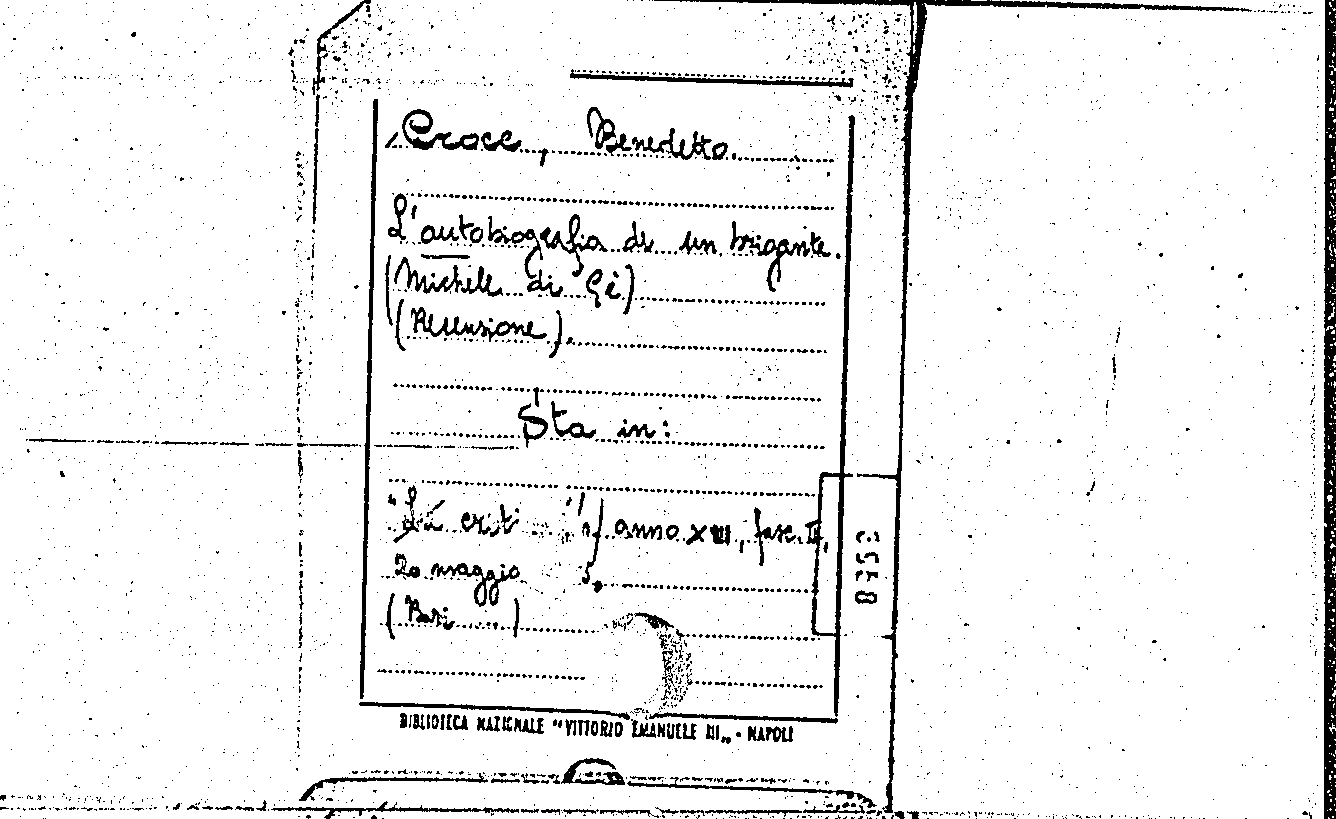 Croce, Benedetto.
L'autobiografia di un brigante.
(Michele di Gè)
(Recensione).
Sta in:
"La criti ", anno XIII, fasc. II,
20 maggio 5.
(Bari )
BIBLIOTECA NAZIONALE "VITTORIO EMANUELE III„ - NAPOLI